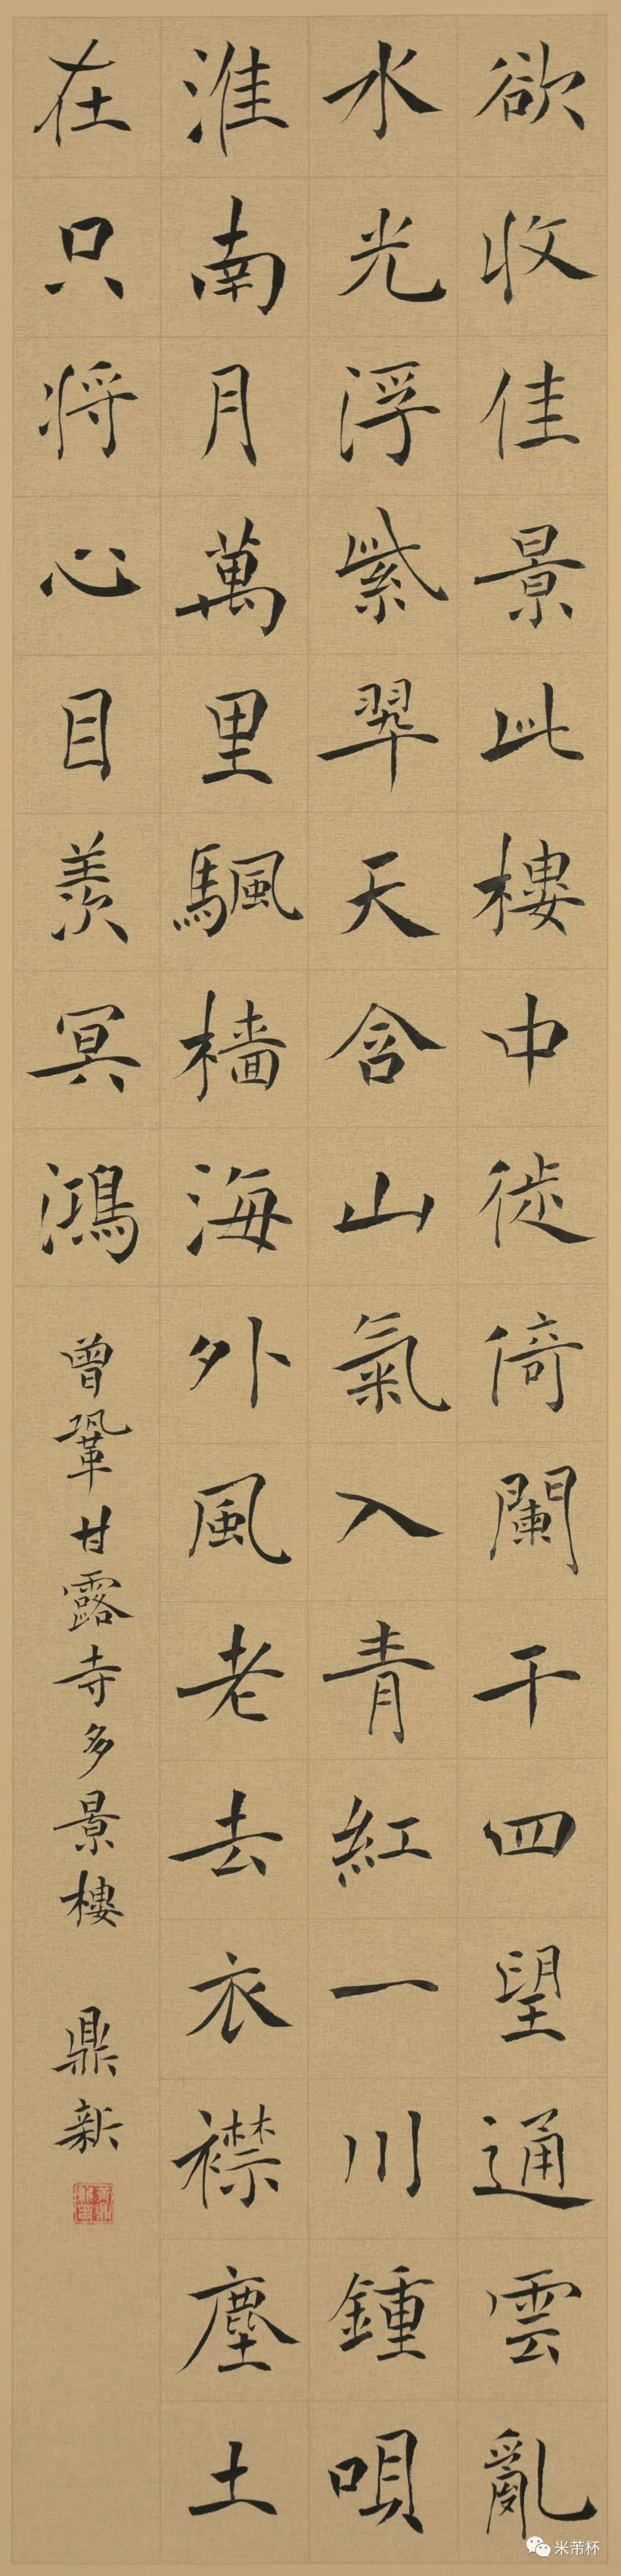 欲收佳景此樓中徙倚闌干四望通雲亂
水光浮紫翠天含山氣入青紅一川鍾唄
淮南月萬里颿檣海外風老去衣襟塵土
在只將心目羨冥鴻
曾鞏甘露寺多景樓 鼎新
米芾杯